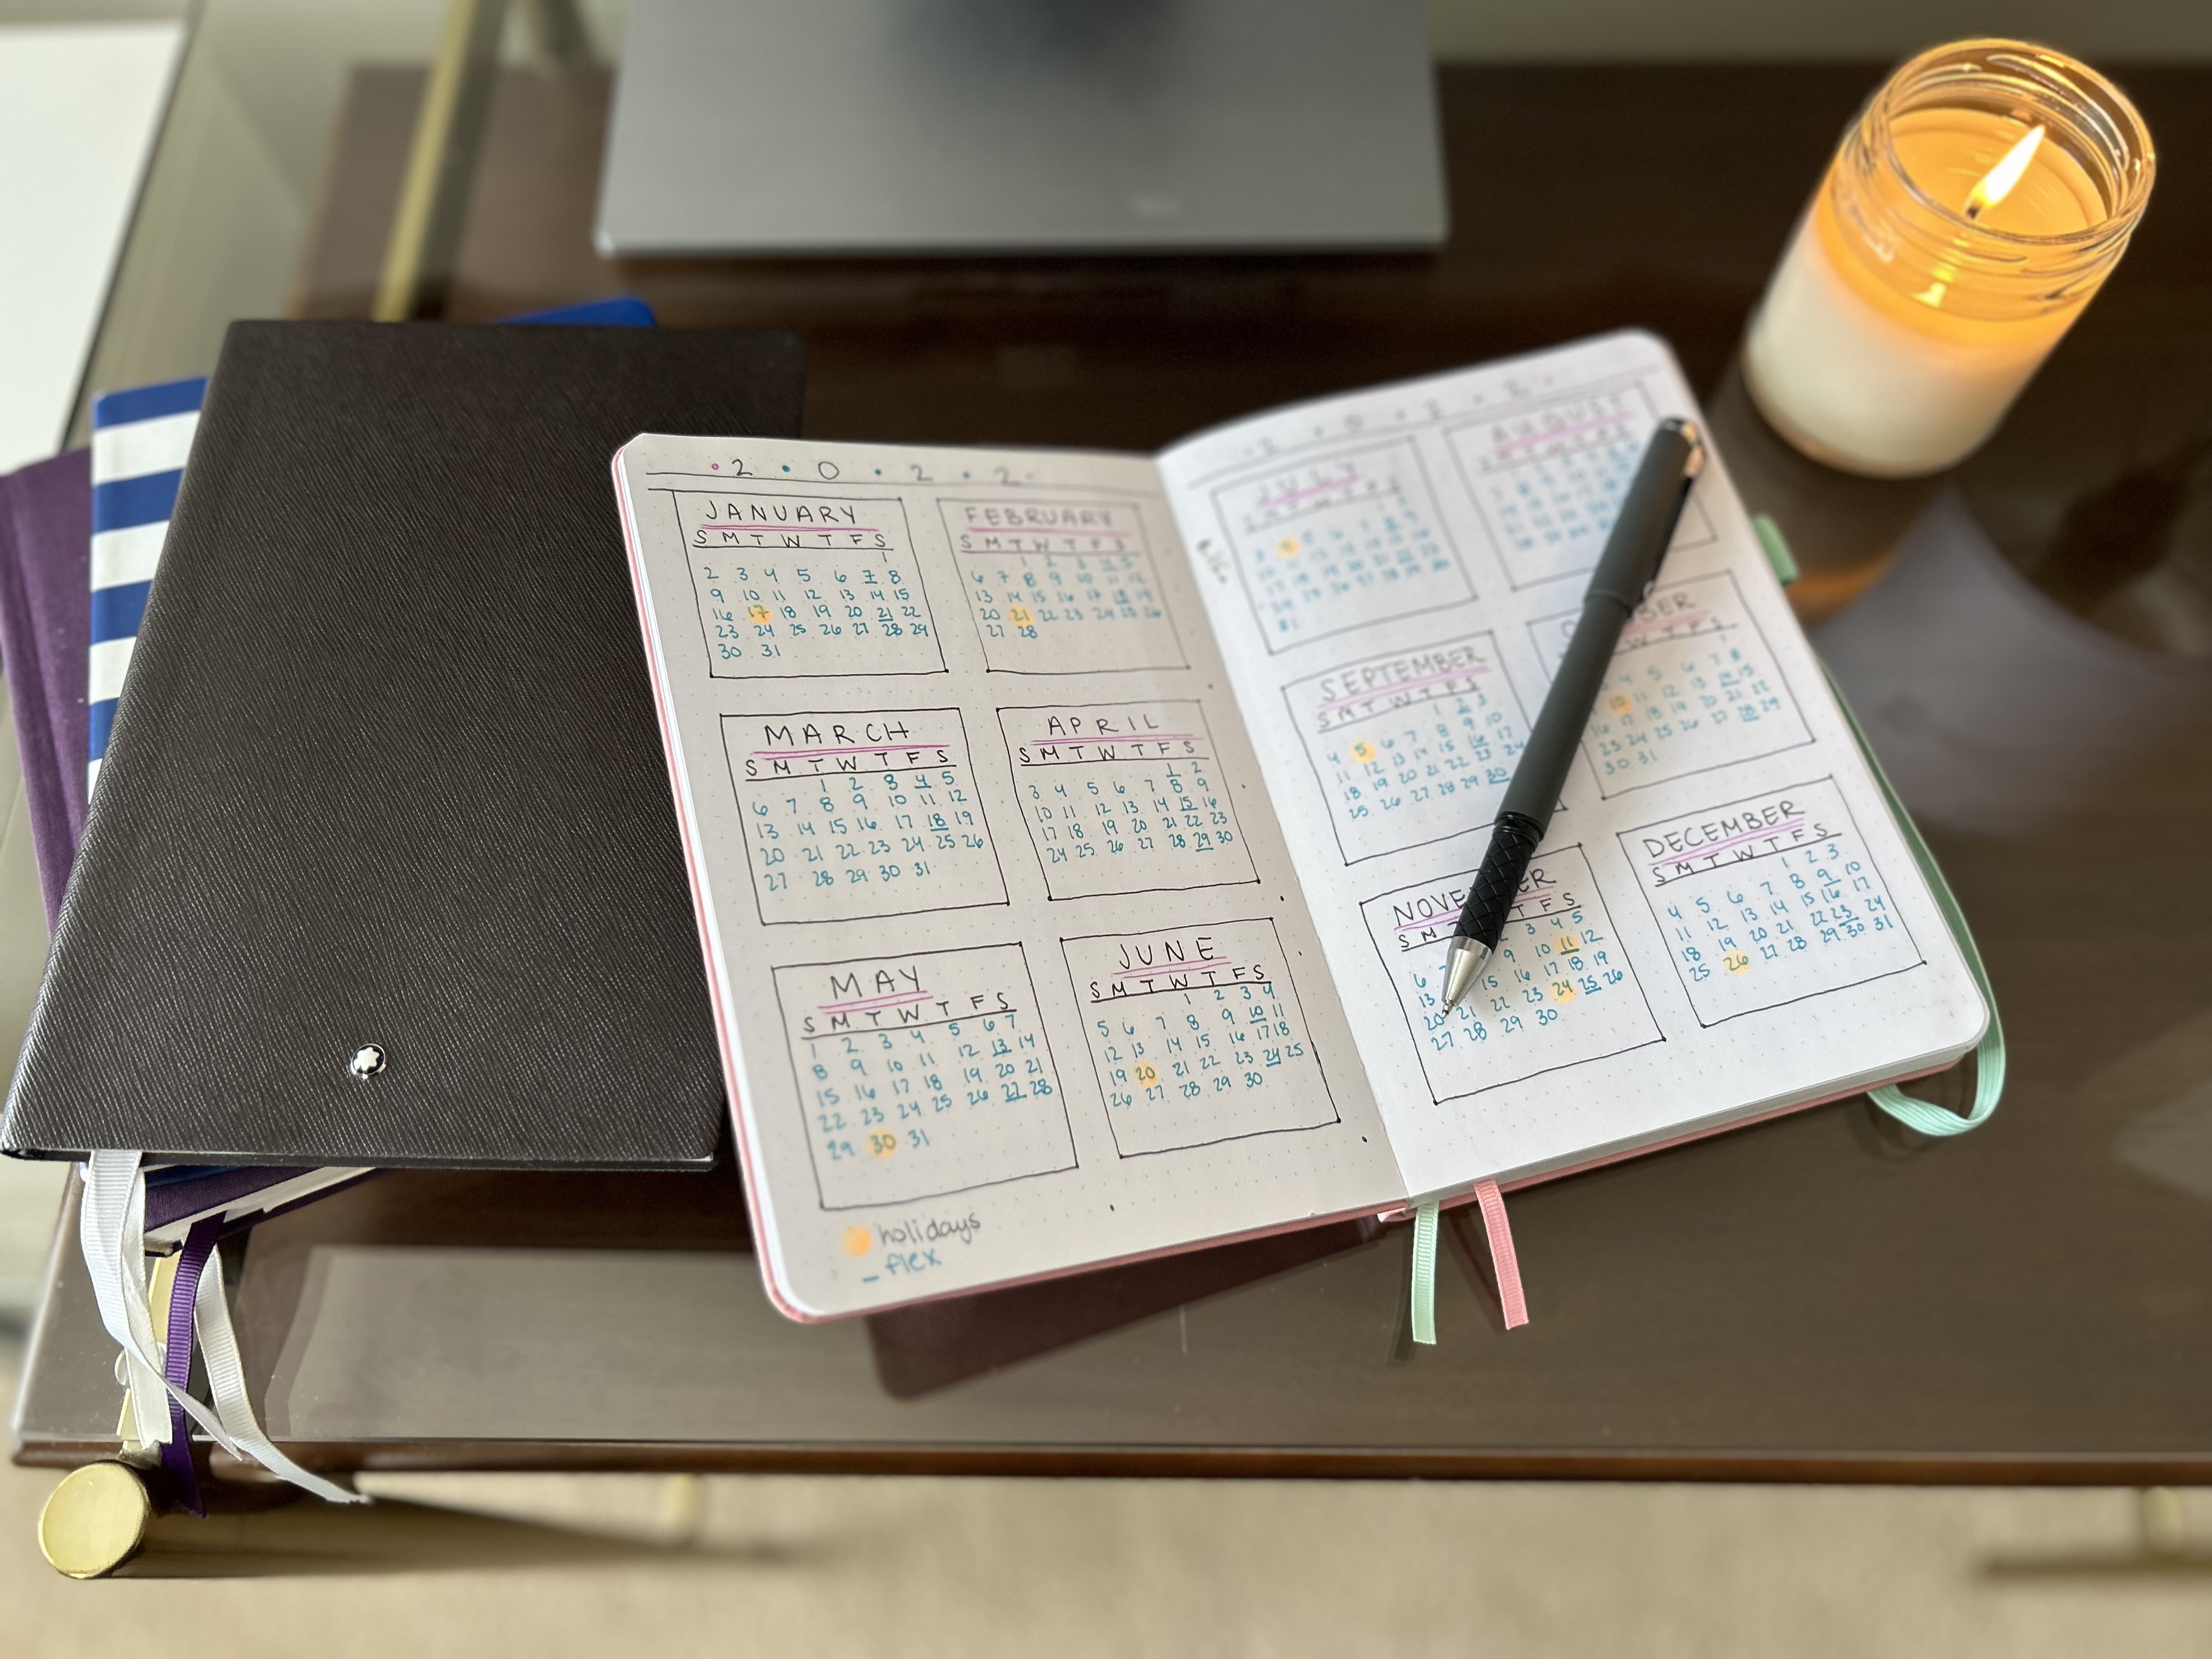 2 0 2 2
JANUARY
S M T W T F S
1
2 3 4 5 6 7 8
9 10 11 12 13 14 15
16 17 18 19 20 21 22
23 24 25 26 27 28 29
30 31
FEBRUARY
S M T W T F S
1 2 3 4 5
6 7 8 9 10 11 12
13 14 15 16 17 18 19
20 21 22 23 24 25 26
27 28
MARCH
S M T W T F S
1 2 3 4 5
6 7 8 9 10 11 12
13 14 15 16 17 18 19
20 21 22 23 24 25 26
27 28 29 30 31
APRIL
S M T W T F S
1 2
3 4 5 6 7 8 9
10 11 12 13 14 15 16
17 18 19 20 21 22 23
24 25 26 27 28 29 30
MAY
S M T W T F S
1 2 3 4 5 6 7
8 9 10 11 12 13 14
15 16 17 18 19 20 21
22 23 24 25 26 27 28
29 30 31
JUNE
S M T W T F S
1 2 3 4
5 6 7 8 9 10 11
12 13 14 15 16 17 18
19 20 21 22 23 24 25
26 27 28 29 30
holidays
flex
2 0 2 2
JULY
AUGUST
SEPTEMBER
S M T W T F S
1 2 3
4 5 6 7 8 9 10
11 12 13 14 15 16 17
18 19 20 21 22 23 24
25 26 27 28 29 30
BER
W T F S
1
4 5 6 7 8
10 11 12 13 14 15
16 17 18 19 20 21 22
23 24 25 26 27 28 29
30 31
NOVE ER
S M T F S
2 3 4 5
6 7 9 10 11 12
13 15 16 17 18 19
20 21 22 23 24 25 26
27 28 29 30
DECEMBER
S M T W T F S
1 2 3
4 5 6 7 8 9 10
11 12 13 14 15 16 17
18 19 20 21 22 23 24
25 26 27 28 29 30 31